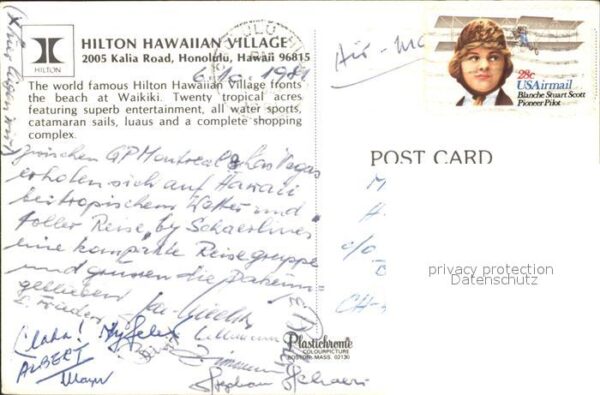 HILTON
HILTON HAWAIIAN VILLAGE
2005 Kalia Road, Honolulu, Hawaii 96815
6.10.1981
The world famous Hilton Hawaiian Village fronts
the beach at Waikiki. Twenty tropical acres
featuring superb entertainment, all water sports,
catamaran sails, luaus and a complete shopping
complex.
Air-
28c
USAirmail
Blanche Stuart Scott
Pioneer Pilot
POST CARD
zwischen GP Montreal & Las Vegas
erholen sich auf Hawaii
bei tropischem Wetter und
toller Reise, by Schaerlines
eine kompakte Reisegruppe
und grüssen die Daheim-
gebliebenen
c/o
CH-
privacy protection
Datenschutz
Aloha!
ALBERT
Mayer
Stephan Schaer
Plastichrome
COLOURPICTURE
BOSTON, MASS. 02130